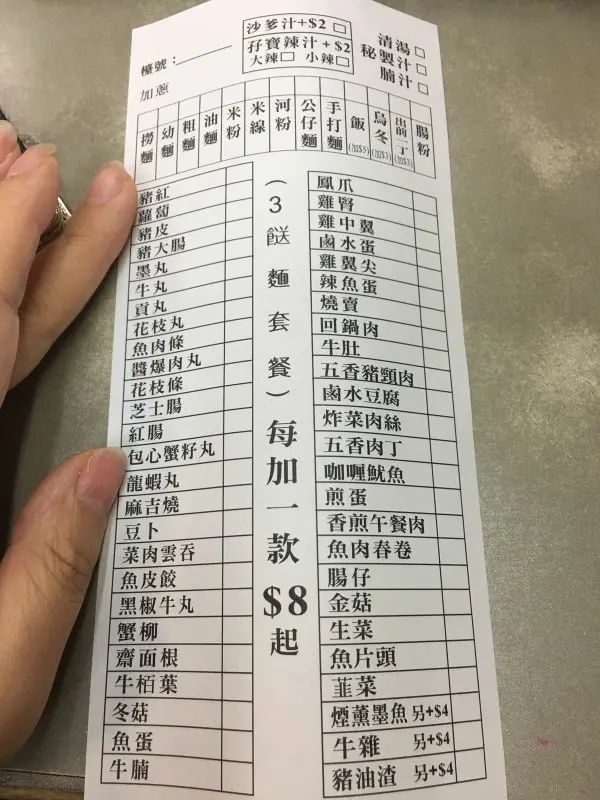 沙爹汁+$2
孖寶辣汁+$2
大辣 小辣
清湯
秘製汁
腩汁
檯號：
加蔥
撈麵
幼麵
粗麵
油麵
米粉
米線
河粉
公仔麵
手打麵
飯(加$5)
烏冬(加$3)
出前一丁(加$3)
腸粉
豬紅
蘿蔔
豬皮
豬大腸
墨丸
牛丸
貢丸
花枝丸
魚肉條
醬爆肉丸
花枝條
芝士腸
紅腸
包心蟹籽丸
龍蝦丸
麻吉燒
豆卜
菜肉雲吞
魚皮餃
黑椒牛丸
蟹柳
齋面根
牛栢葉
冬菇
魚蛋
牛腩
(3餸麵套餐)每加一款$8起
鳳爪
雞腎
雞中翼
鹵水蛋
雞翼尖
辣魚蛋
燒賣
回鍋肉
牛肚
五香豬頸肉
鹵水豆腐
炸菜肉絲
五香肉丁
咖喱魷魚
煎蛋
香煎午餐肉
魚肉春卷
腸仔
金菇
生菜
魚片頭
韮菜
煙薰墨魚 另+$4
牛雜 另+$4
豬油渣 另+$4